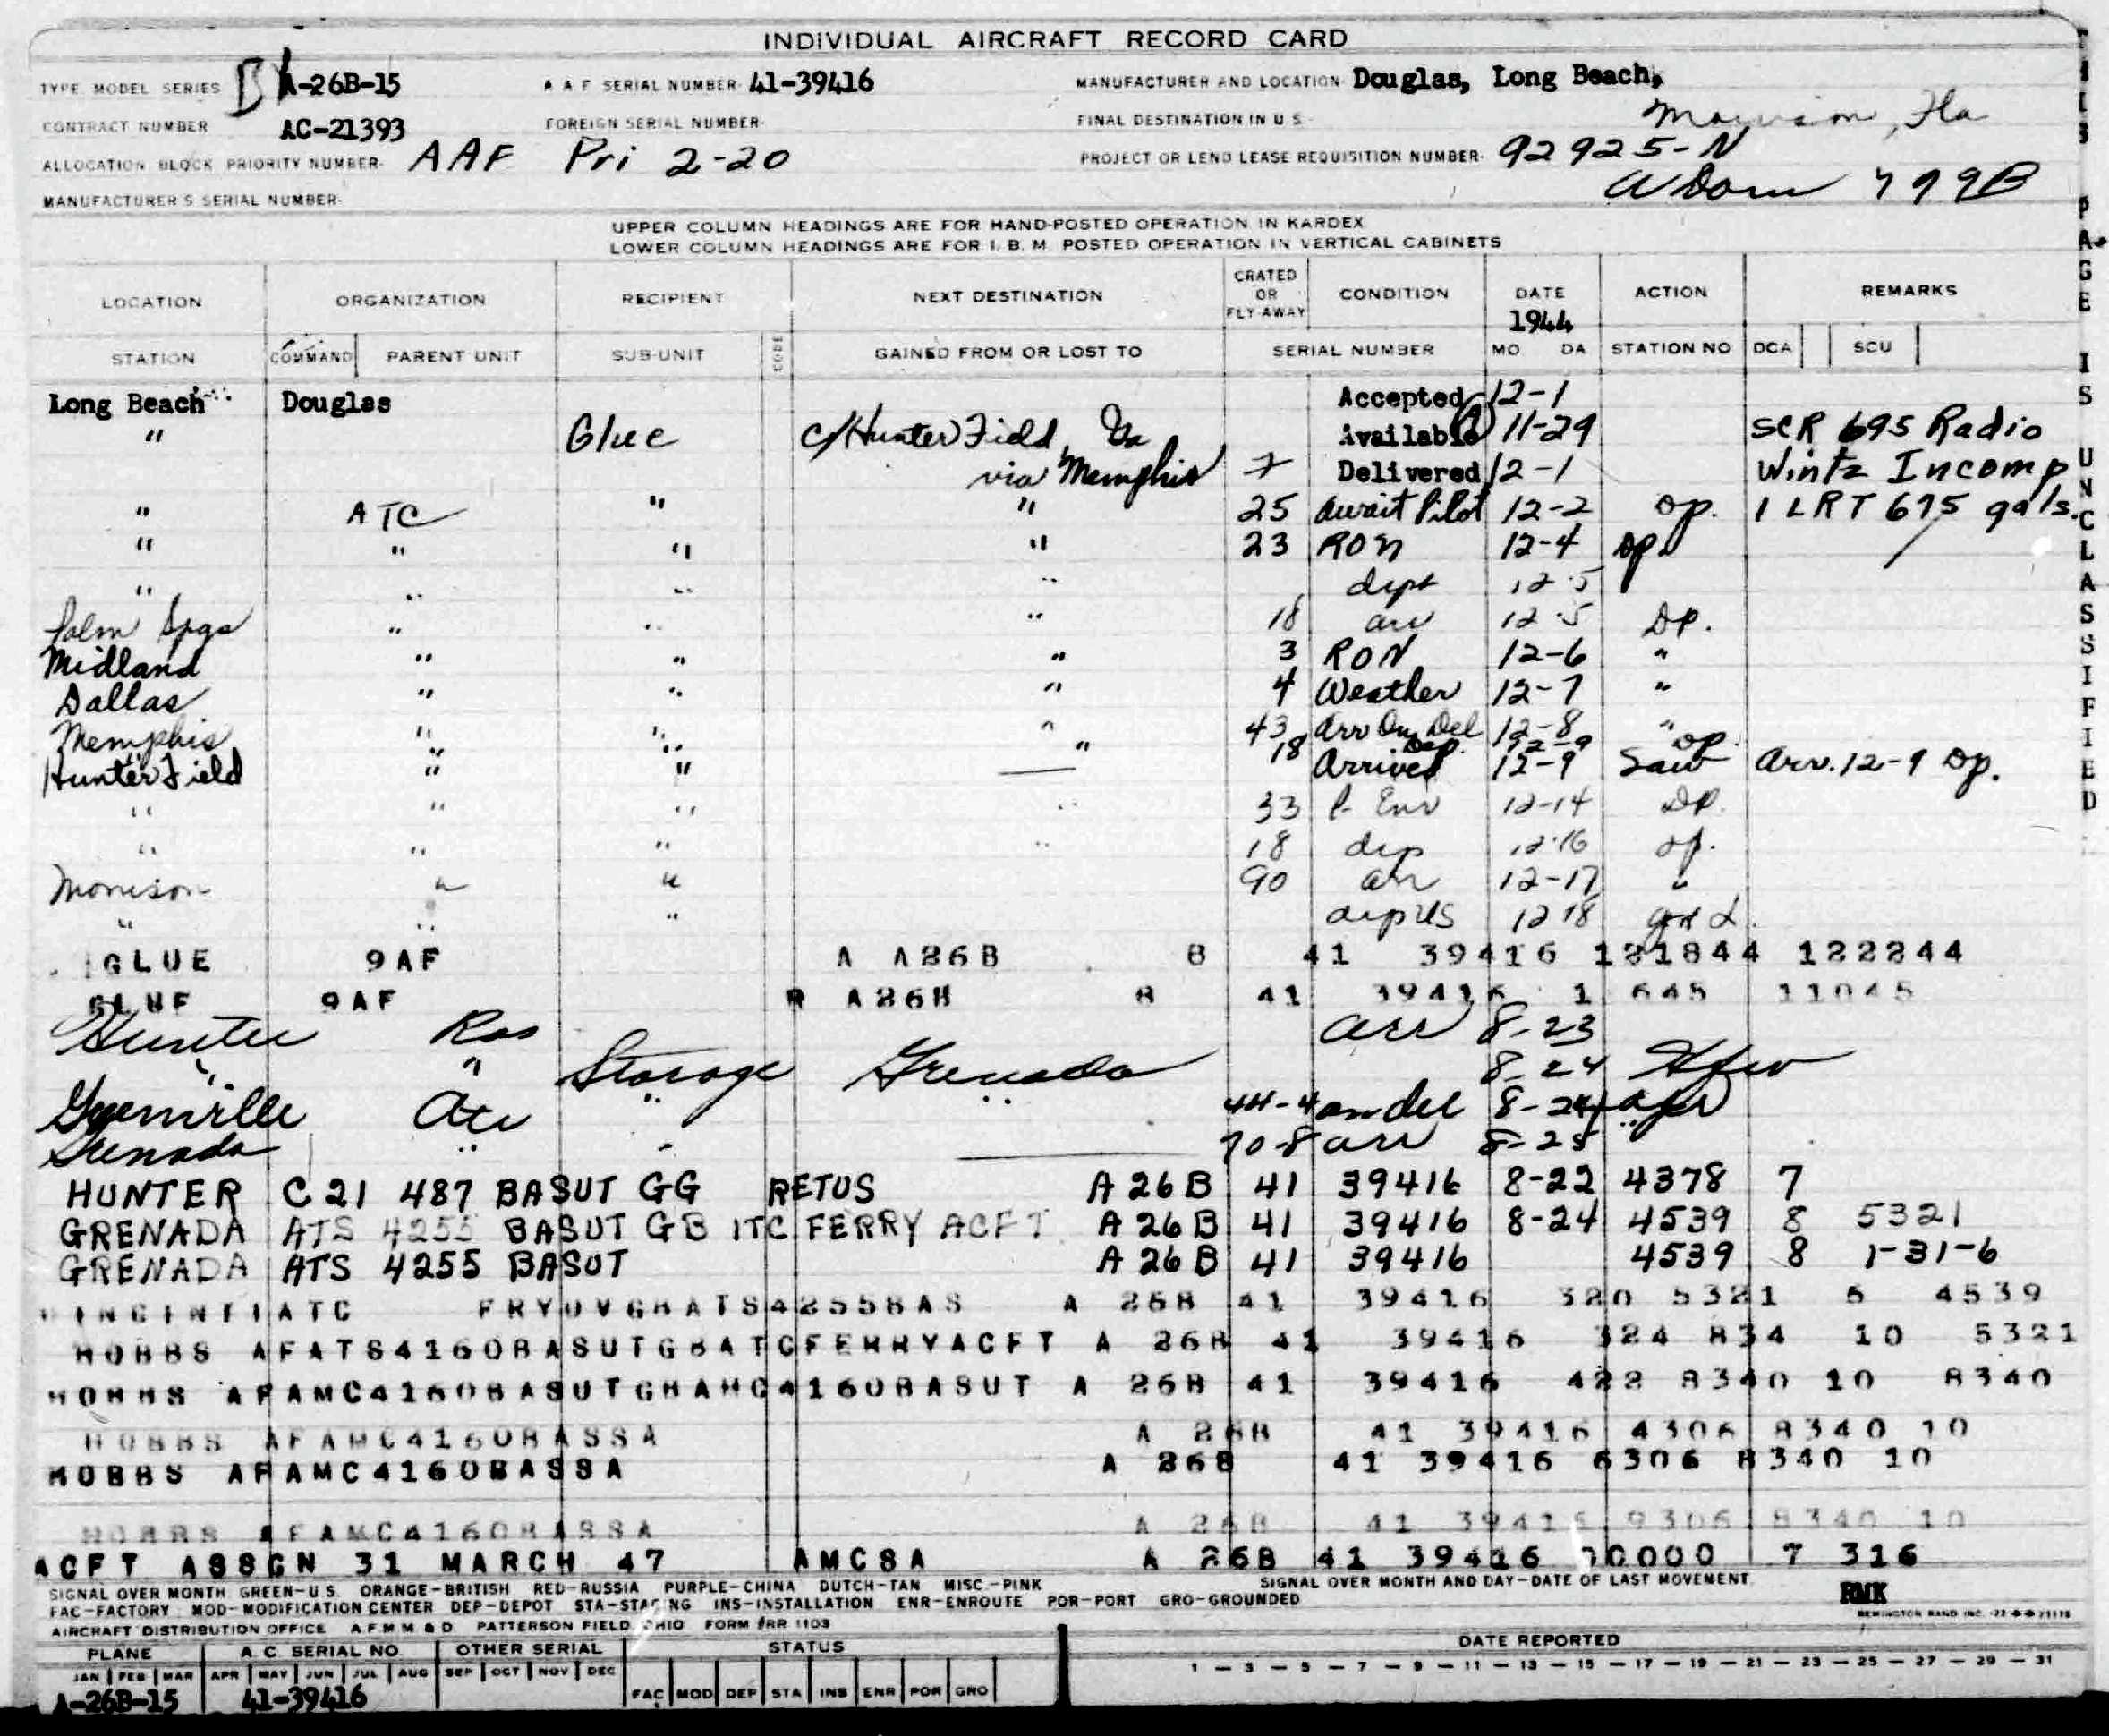 INDIVIDUAL AIRCRAFT RECORD CARD
TYPE MODEL SERIES B A-26B-15 A A F SERIAL NUMBER 41-39416 MANUFACTURER AND LOCATION Douglas, Long Beach,
CONTRACT NUMBER AC-21393 FOREIGN SERIAL NUMBER FINAL DESTINATION IN U S Morrison, Fla
ALLOCATION BLOCK PRIORITY NUMBER AAF Pri 2-20 PROJECT OR LEND LEASE REQUISITION NUMBER 92925-N
MANUFACTURER'S SERIAL NUMBER 799B
UPPER COLUMN HEADINGS ARE FOR HAND-POSTED OPERATION IN KARDEX
LOWER COLUMN HEADINGS ARE FOR I. B. M. POSTED OPERATION IN VERTICAL CABINETS
LOCATION ORGANIZATION RECIPIENT NEXT DESTINATION CRATED OR FLY-AWAY CONDITION DATE 1944 ACTION REMARKS
STATION COMMAND PARENT UNIT SUB-UNIT CODE GAINED FROM OR LOST TO SERIAL NUMBER MO DA STATION NO DCA SCU
Long Beach Douglas Accepted 12-1
" Glue c/Hunter Field, Ga Available 11-29 SCR 695 Radio
via Memphis 7 Delivered 12-1 Wintz Incomp
" ATC " " 25 Await Pilot 12-2 Op. 1 LRT 675 gals.
" " " " 23 RON 12-4 Op.
" " " " dept 12-5
Palm Spgs " " " 18 arr 12-5 Op.
Midland " " " 3 RON 12-6 "
Dallas " " " 4 Weather 12-7 "
Memphis " " " 43 Arr Del 12-8 "
" " " 18 Dep. 12-9 Op.
Hunter Field " " — Arrived 12-9 Sav Arr. 12-9 Op.
" " " " 33 P- Enr 12-14 Op.
" " " " 18 dep 12-16 Op.
Morrison " " 90 arr 12-17 "
" " " dep US 12 18
GLUE 9AF A A26B B 41 39416 121844 122244
GLUE 9AF R A26B B 41 39416 1 645 11045
Hunter arr 8-23
" " Storage Grenada 8-24
Greenville Atc " " 44-4 8-24
Grenada " - 70-8 arr 8-25
HUNTER C21 487 BASUT GG RETUS A26B 41 39416 8-22 4378 7
GRENADA ATS 4255 BASUT GB ITC FERRY ACFT A26B 41 39416 8-24 4539 8 5321
GRENADA ATS 4255 BASUT A26B 41 39416 4539 8 1-31-6
ATC FRYOVGBATS4255BAS A 26B 41 39416 320 5321 5 4539
HOBBS AFATS4160BASUTGBATCFERRYACFT A 26B 41 39416 324 834 10 5321
HOBBS AFAMC4160BASUTGBAMC4160BASUT A 26B 41 39416 422 8340 10 8340
HOBBS AFAMC4160BASSA A 26B 41 39416 4306 8340 10
HOBBS AFAMC4160BASSA A 26B 41 39416 6306 8340 10
HOBBS AFAMC4160BASSA A 26B 41 39416 9306 8340 10
ACFT ASSGN 31 MARCH 47 AMCSA A 26B 41 39416 00000 7 316
SIGNAL OVER MONTH GREEN-U.S. ORANGE-BRITISH RED-RUSSIA PURPLE-CHINA DUTCH-TAN MISC.-PINK SIGNAL OVER MONTH AND DAY-DATE OF LAST MOVEMENT
FAC-FACTORY MOD-MODIFICATION CENTER DEP-DEPOT STA-STAGING INS-INSTALLATION ENR-ENROUTE POR-PORT GRO-GROUNDED RMK
AIRCRAFT DISTRIBUTION OFFICE A.F.M.M & D. PATTERSON FIELD, OHIO FORM #RR 1103 REMINGTON RAND INC.
PLANE A. C. SERIAL NO. OTHER SERIAL STATUS DATE REPORTED
JAN FEB MAR APR MAY JUN JUL AUG SEP OCT NOV DEC 1 — 3 — 5 — 7 — 9 — 11 — 13 — 15 — 17 — 19 — 21 — 23 — 25 — 27 — 29 — 31
A-26B-15 41-39416 FAC MOD DEP STA INS ENR POR GRO
THIS PAGE IS UNCLASSIFIED